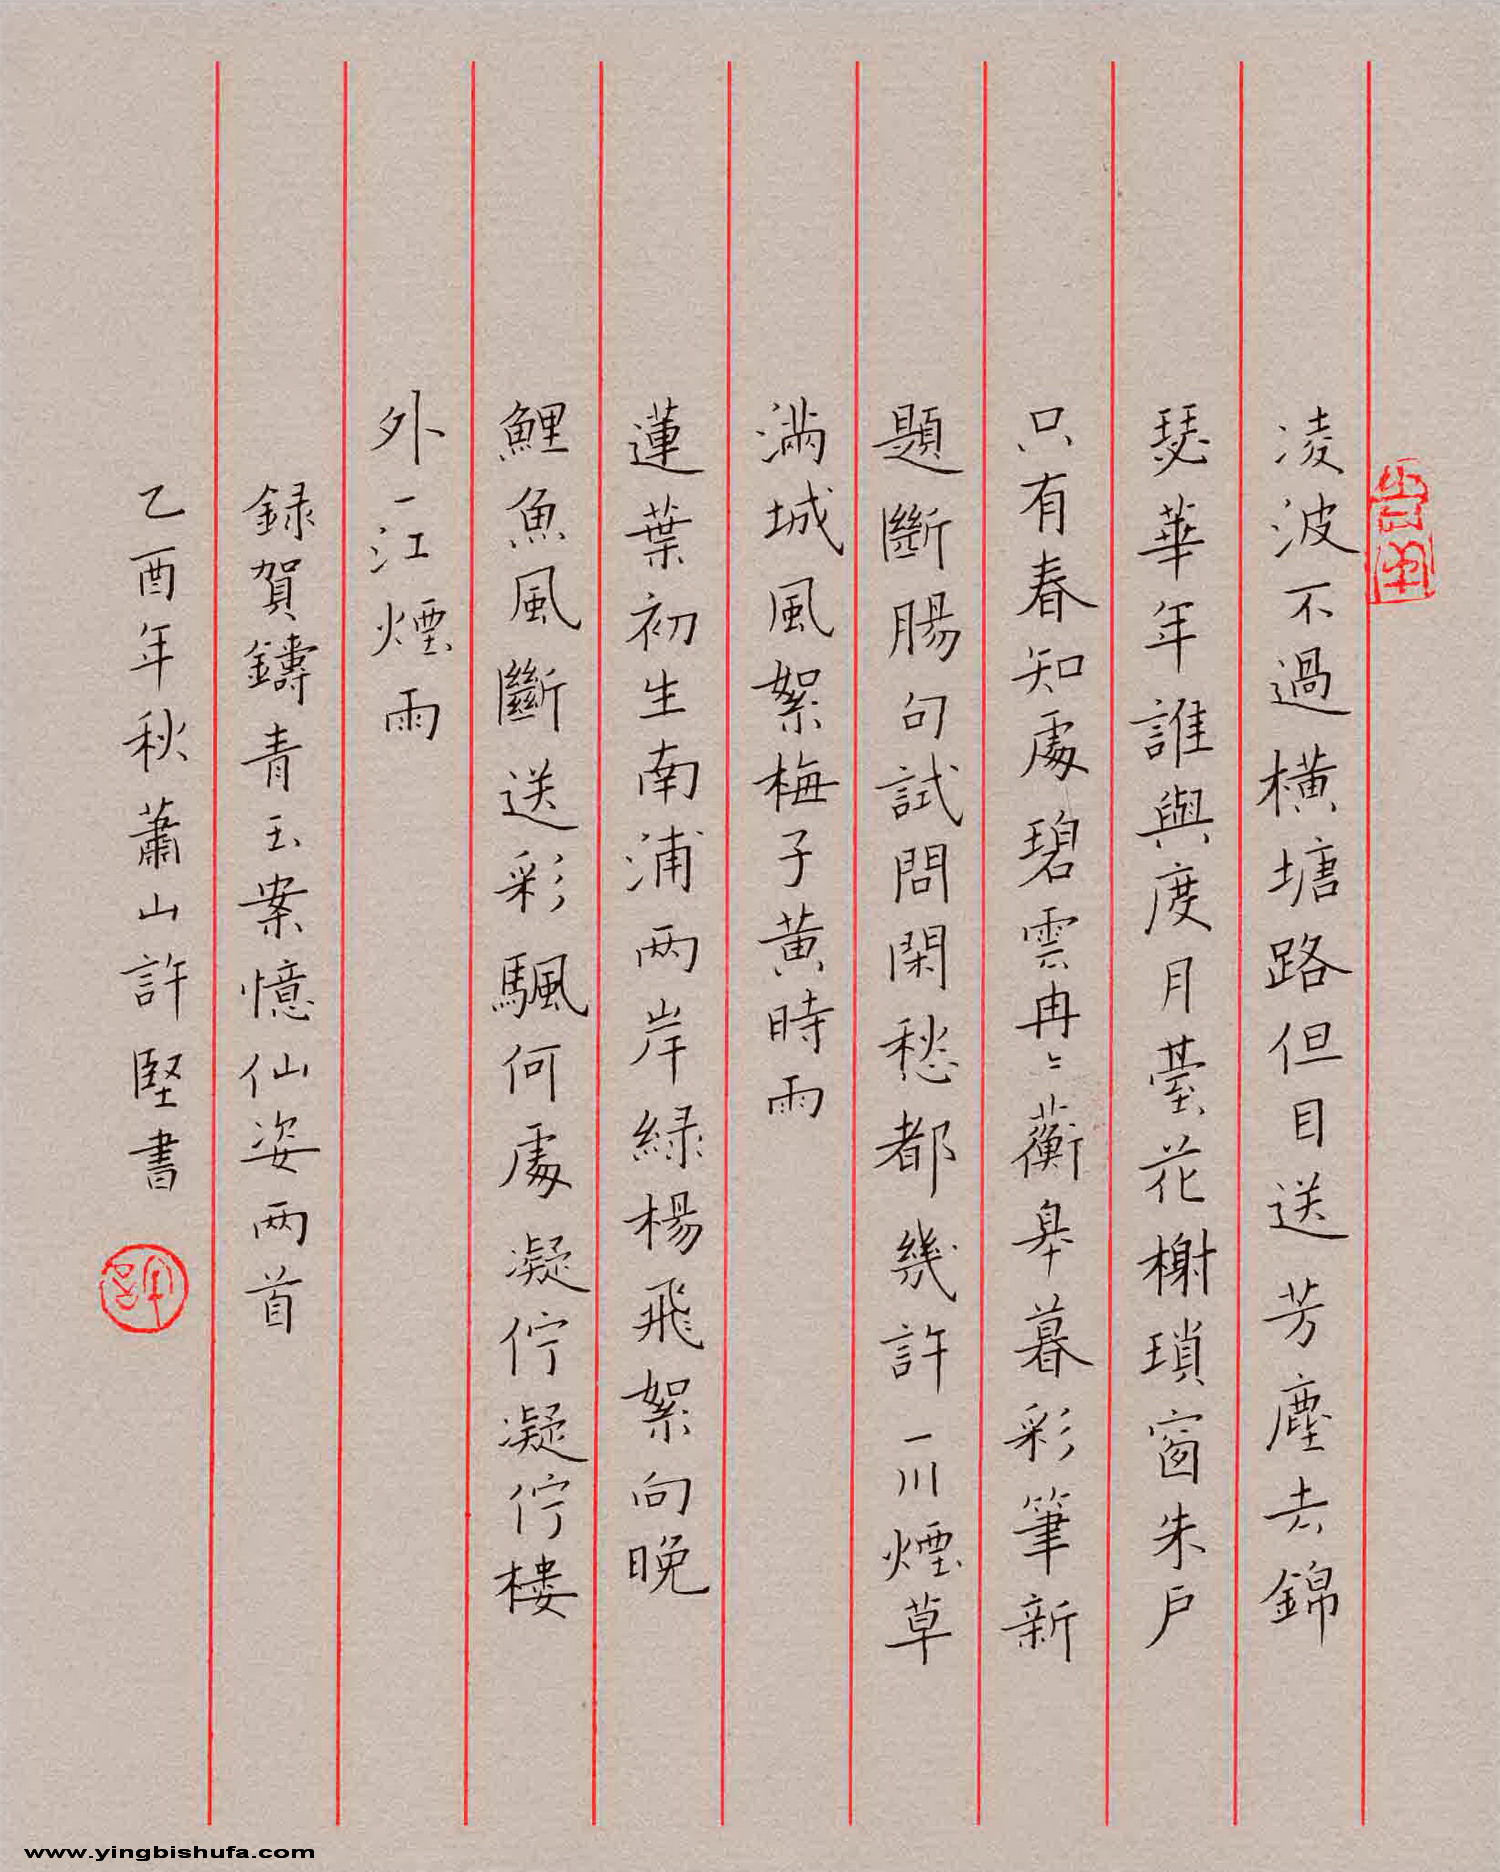 凌波不過橫塘路但目送芳塵去錦
瑟華年誰與度月臺花榭瑣窗朱戶
只有春知處碧雲冉〻蘅皋暮彩筆新
題斷腸句試問閑愁都幾許一川煙草
滿城風絮梅子黃時雨
蓮葉初生南浦两岸綠楊飛絮向晚
鯉魚風斷送彩颿何處凝佇凝佇樓
外一江煙雨
録賀鑄青玉案憶仙姿两首
乙酉年秋蕭山許堅書
www.yingbishufa.com